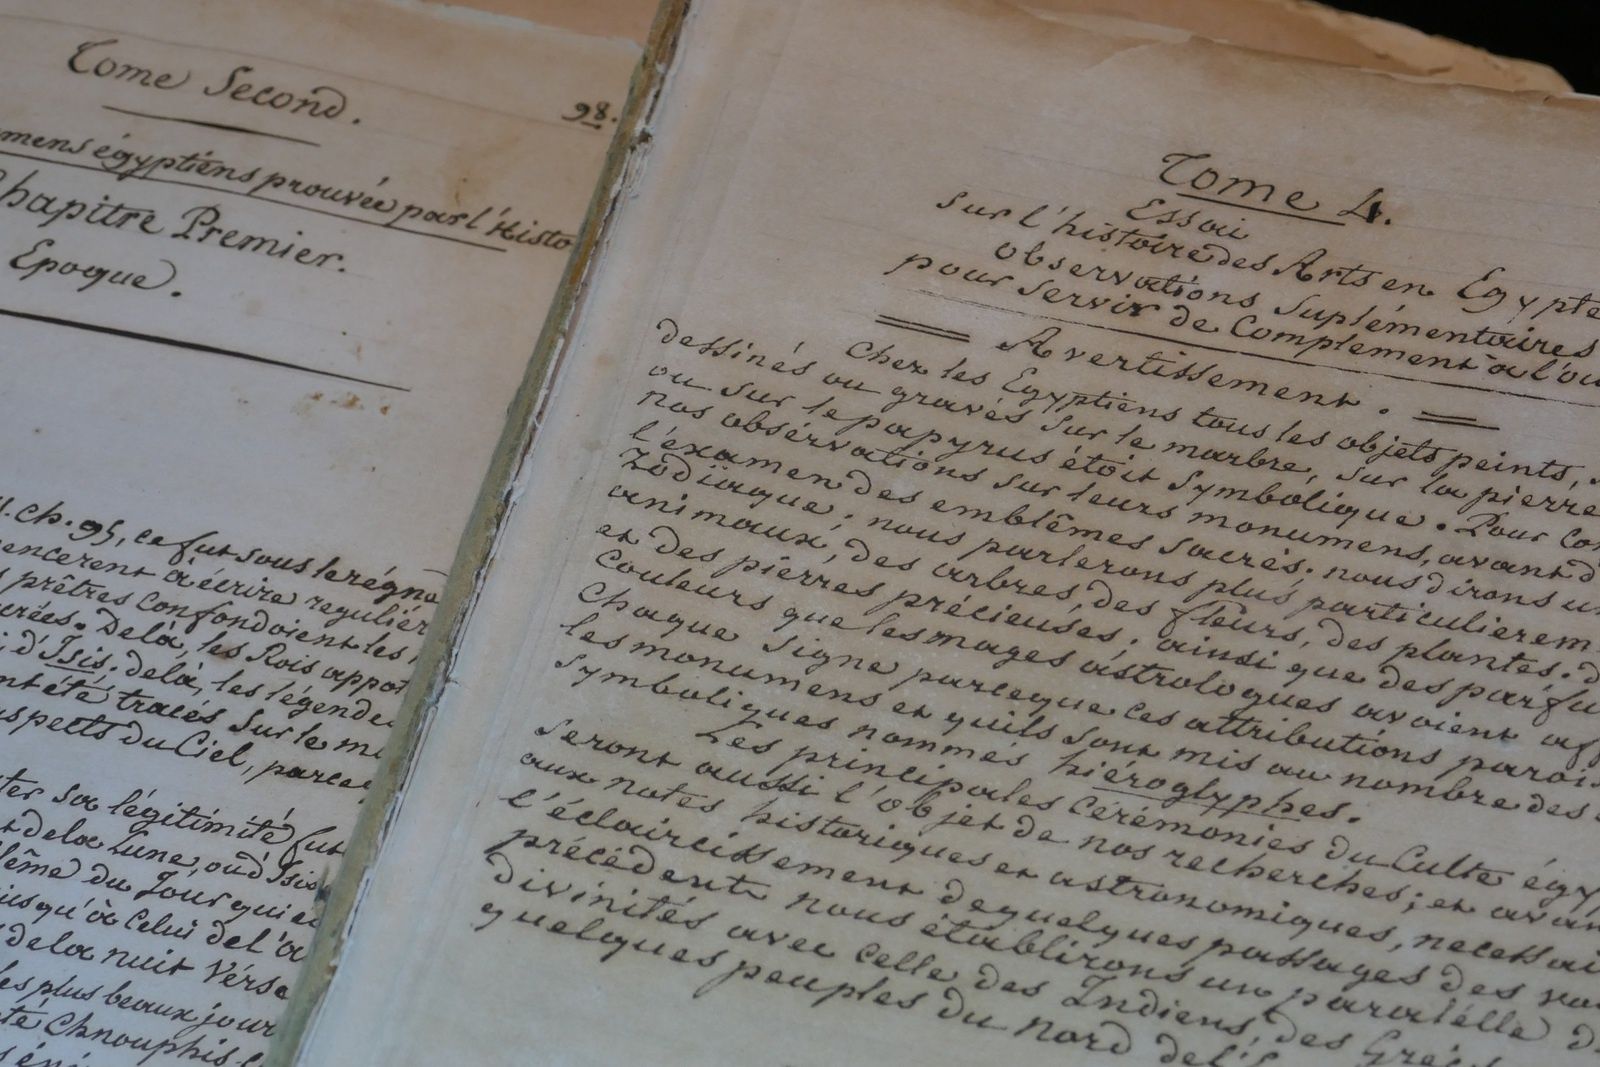 Tome Second.
98.
mens égyptiens prouvée par l'Histo
Chapitre Premier.
Epoque.
ch. 95, ce fut sous le régne
encerent à écrire reguliér
prêtres confondoient les
crées. Delà, les Rois appor
d'Isis; delà, les légendes
nt été tracés sur le m
spects du Ciel, parceq
ter sa légitimité fut
dela Lune, où d'Isis
lême du Jour qui e
usqu'à celui de l'a
dela nuit Vérse
es plus beaux jour
té Chnouphis
Tome 4.
Essai
sur l'histoire des Arts en Egypte
observations Suplémentaires
pour servir de Complement à l'ou
Avertissement.
Chez les Egyptiens tous les objets peints, s
dessinés ou gravés sur le marbre, sur la pierre
ou sur le papyrus étoit Symbolique. Pour con
nos obsérvations sur leurs monumens, avant d
l'éxamen des emblêmes sacrés; nous dirons u
Zodiaque; nous parlerons plus particulierem
animaux, des arbres, des fleurs, des plantes, d
et des pierres précieuses; ainsi que des parfu
couleurs que les mages astrologues avoient aff
chaque signe parceque ces attributions parois
les monumens et quils sont mis au nombre des
symboliques nommés hiéroglyphes.
Les principales cérémonies du Culte égy
seront aussi l'objet de nos recherches; et avan
aux notes historiques et astronomiques, necessai
l'éclaircissement dequelques passages des vo
précédents nous établirons un paralélle d
divinités avec celle des Indiens, des Grecs
quelques peuples du nord del'